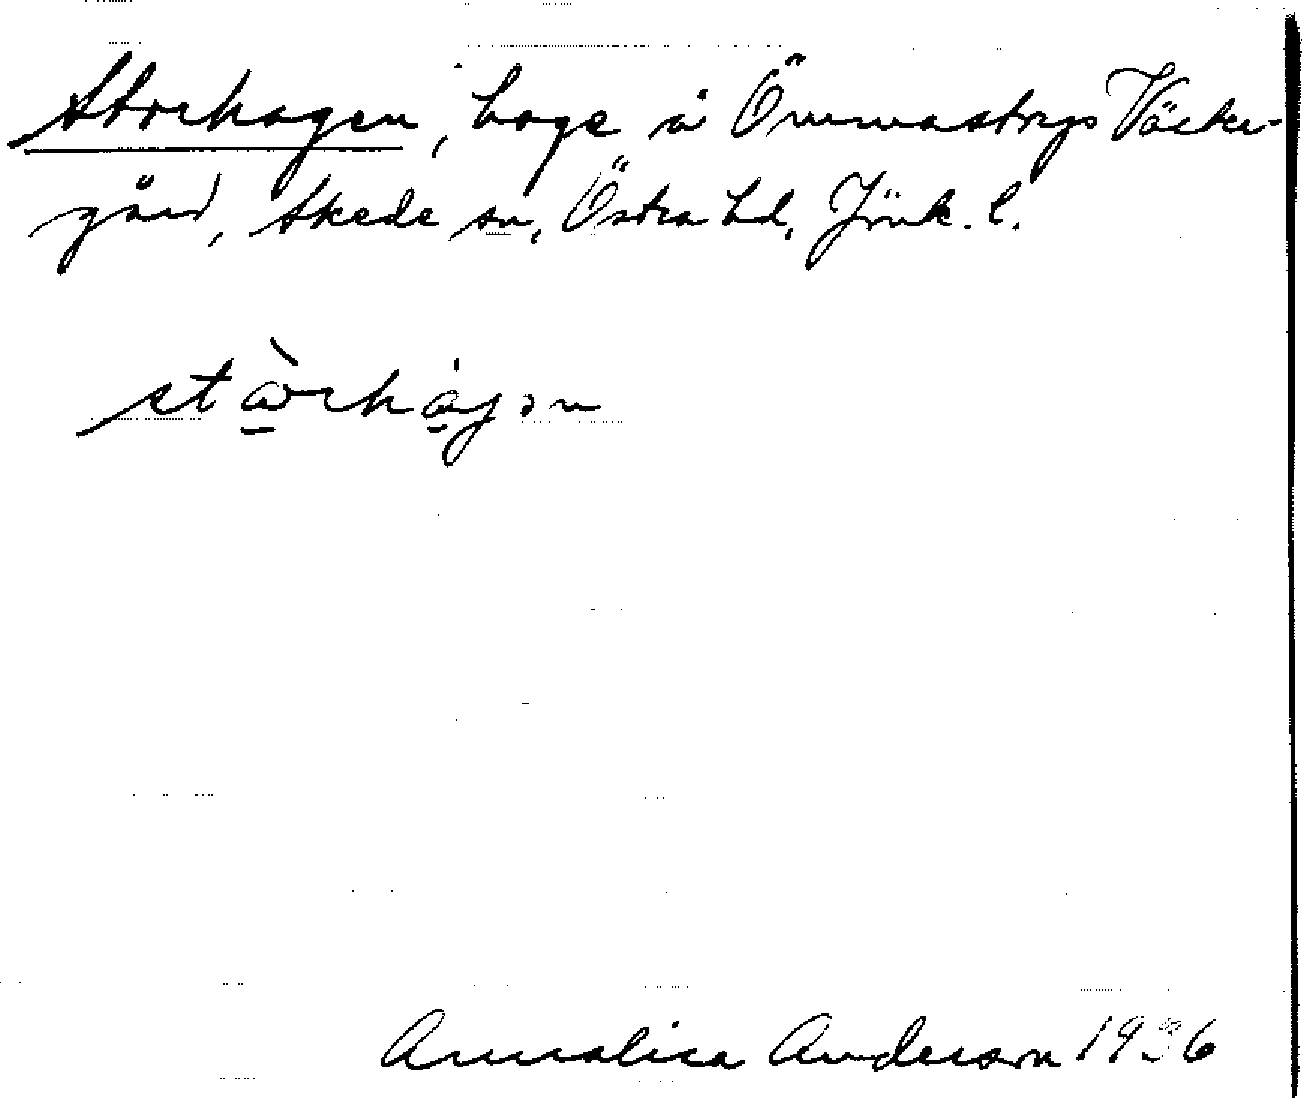 Storhagen, hage å Ömmastorps Väster-
gård, Skede sn, Östra hd, Jönk. l.
stòrhágən
Annalisa Anderson 1936